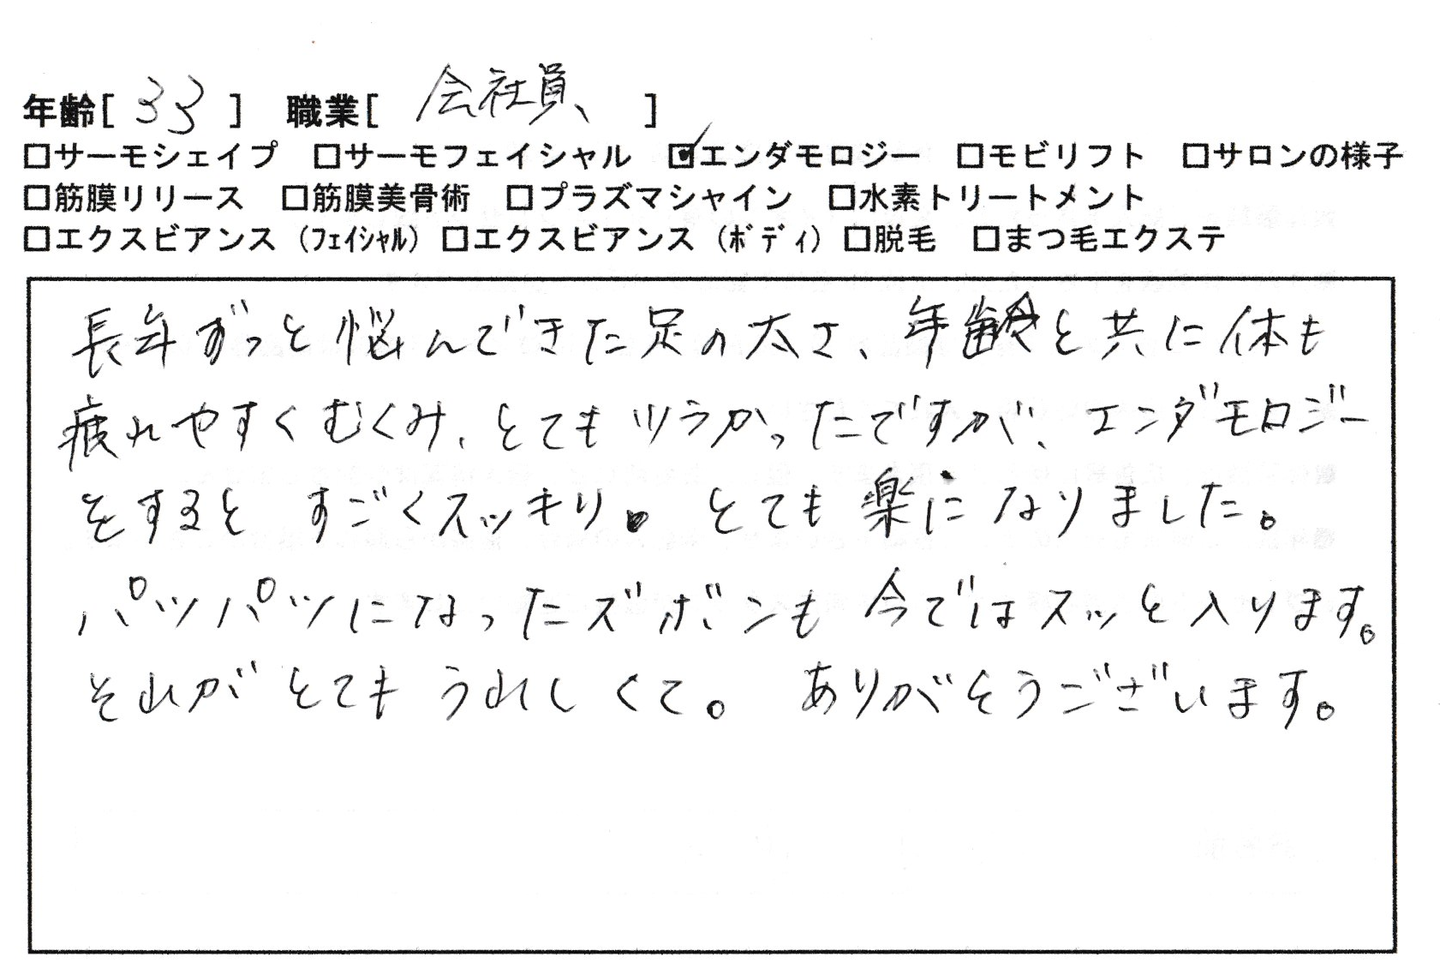 年齢[ 33 ] 職業[ 会社員、 ]
□サーモシェイプ □サーモフェイシャル ☑エンダモロジー □モビリフト □サロンの様子
□筋膜リリース □筋膜美骨術 □プラズマシャイン □水素トリートメント
□エクスビアンス（ﾌｪｲｼｬﾙ）□エクスビアンス（ﾎﾞﾃﾞｨ）□脱毛 □まつ毛エクステ
長年ずっと悩んできた足の太さ、年齢と共に体も
疲れやすくむくみ、とてもツラかったですが、エンダモロジー
をするとすごくスッキリ。とても楽になりました。
パツパツになったズボンも今ではスッと入ります。
それがとてもうれしくて。ありがとうございます。